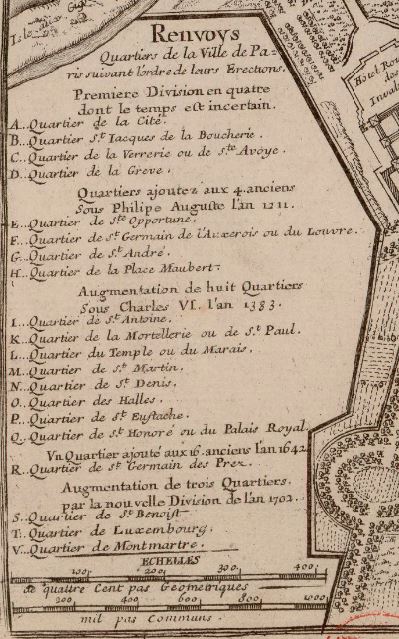 Isle
Gug
Renvoys
Quartiers de la Ville de Pa-
ris suivant l'ordre de leurs Erections.
Premiere Division en quatre
dont le temps est incertain.
A...Quartier de la Cité.
B...Quartier S.t Jacques de la Boucherie.
C...Quartier de la Verrerie ou de S.te Avoye.
D...Quartier de la Greve.
Quartiers ajoutez aux 4. anciens
Sous Philipe Auguste l'an 1211.
E...Quartier de S.te Opportune.
F...Quartier de S.t Germain de l'Auxerois ou du Louvre.
G...Quartier de S.t André.
H...Quartier de la Place Maubert.
Augmentation de huit Quartiers
Sous Charles VI. l'an 1383.
I...Quartier de S.t Antoine.
K...Quartier de la Mortellerie ou de S.t Paul.
L...Quartier du Temple ou du Marais.
M...Quartier de S.t Martin.
N...Quartier de S.t Denis.
O...Quartier des Halles.
P...Quartier de S.t Eustache.
Q...Quartier de S.t Honoré ou du Palais Royal.
Vn Quartier ajouté aux 16. anciens l'an 1642
R...Quartier de S.t Germain des Prez.
Augmentation de trois Quartiers.
par la nouvelle Division de l'an 1702.
S...Quartier de S.t Benoist
T...Quartier de Luxembourg.
V...Quartier de Montmartre.
ECHELLES
100. 200. 300. 400.
de quattre Cent pas Geometriques
200 400 600 800 1000
mil pas Communs.
Hotel Ro
des
Inval